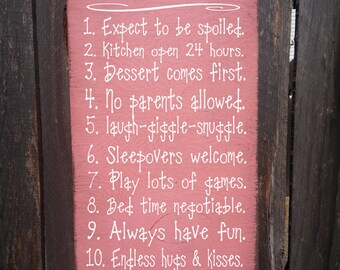 1. Expect to be spoiled.
2. Kitchen open 24 hours.
3. Dessert comes first.
4. No parents allowed.
5. laugh-giggle-snuggle.
6. Sleepovers welcome.
7. Play lots of games.
8. Bed time negotiable.
9. Always have fun.
10. Endless hugs & kisses.